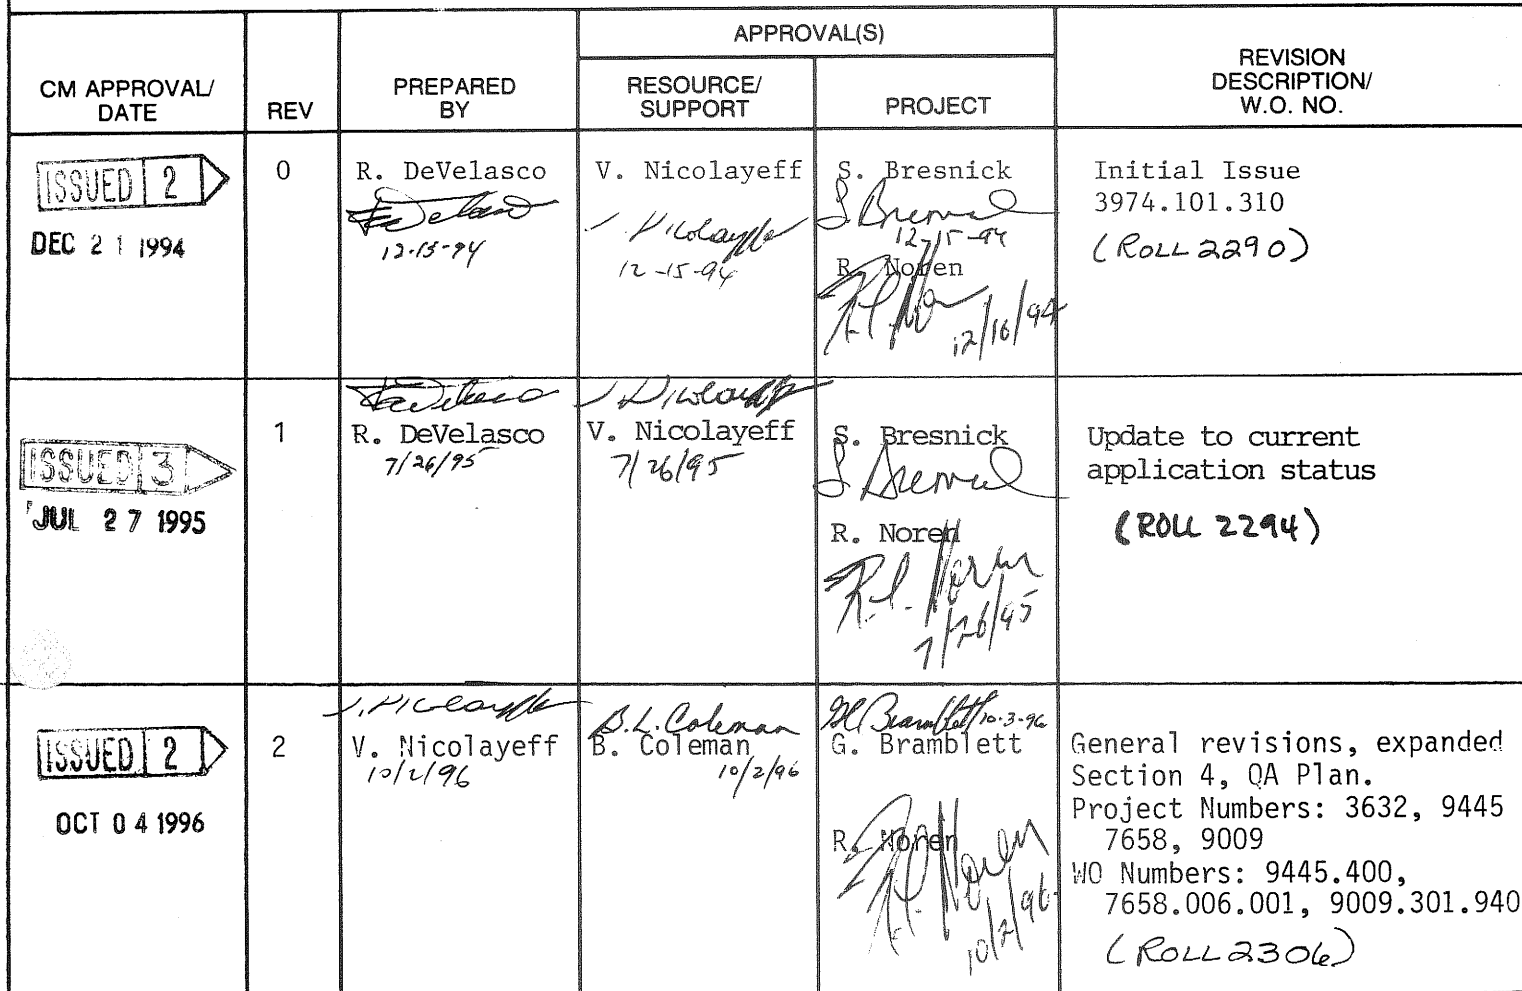 APPROVAL(S)
CM APPROVAL/
DATE
REV
PREPARED
BY
RESOURCE/
SUPPORT
PROJECT
REVISION
DESCRIPTION/
W.O. NO.
ISSUED 2
DEC 21 1994
0
R. DeVelasco
12-15-94
V. Nicolayeff
12-15-94
S. Bresnick
12-15-94
R. Noren
12/16/94
Initial Issue
3974.101.310
(ROLL 2290)
ISSUED 3
JUL 27 1995
1
R. DeVelasco
7/26/95
V. Nicolayeff
7/26/95
S. Bresnick
R. Noren
R.L. Noren
7/26/95
Update to current
application status
(ROLL 2294)
ISSUED 2
OCT 04 1996
2
V. Nicolayeff
10/2/96
B.L. Coleman
B. Coleman
10/2/96
Bramblett 10-3-96
G. Bramblett
R. Noren
R.L. Noren
10/2/96
General revisions, expanded
Section 4, QA Plan.
Project Numbers: 3632, 9445
7658, 9009
WO Numbers: 9445.400,
7658.006.001, 9009.301.940
(ROLL 2306)